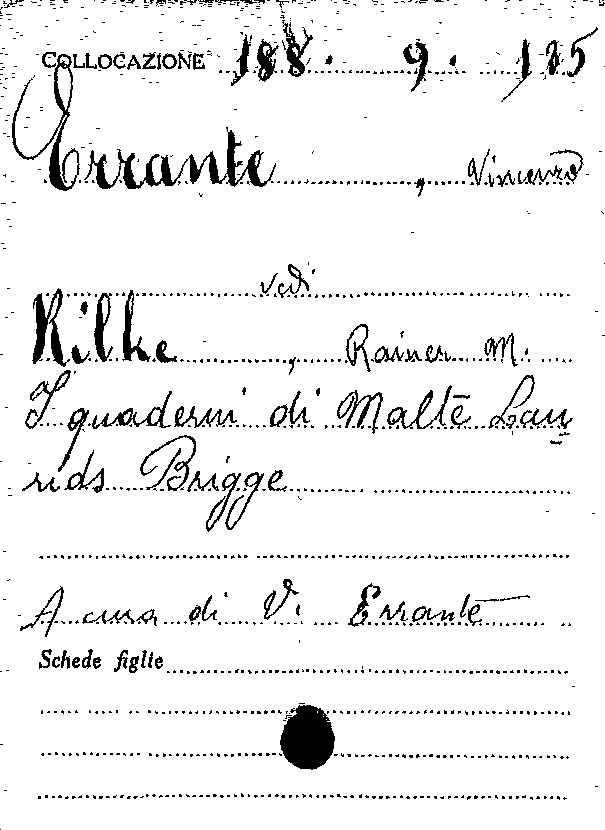 COLLOCAZIONE 188. 9. 185
Errante, Vincenzo
vedi
Rilke, Rainer M.
I quaderni di Malte Lau
rids Brigge
A cura di V. Errante
Schede figlie